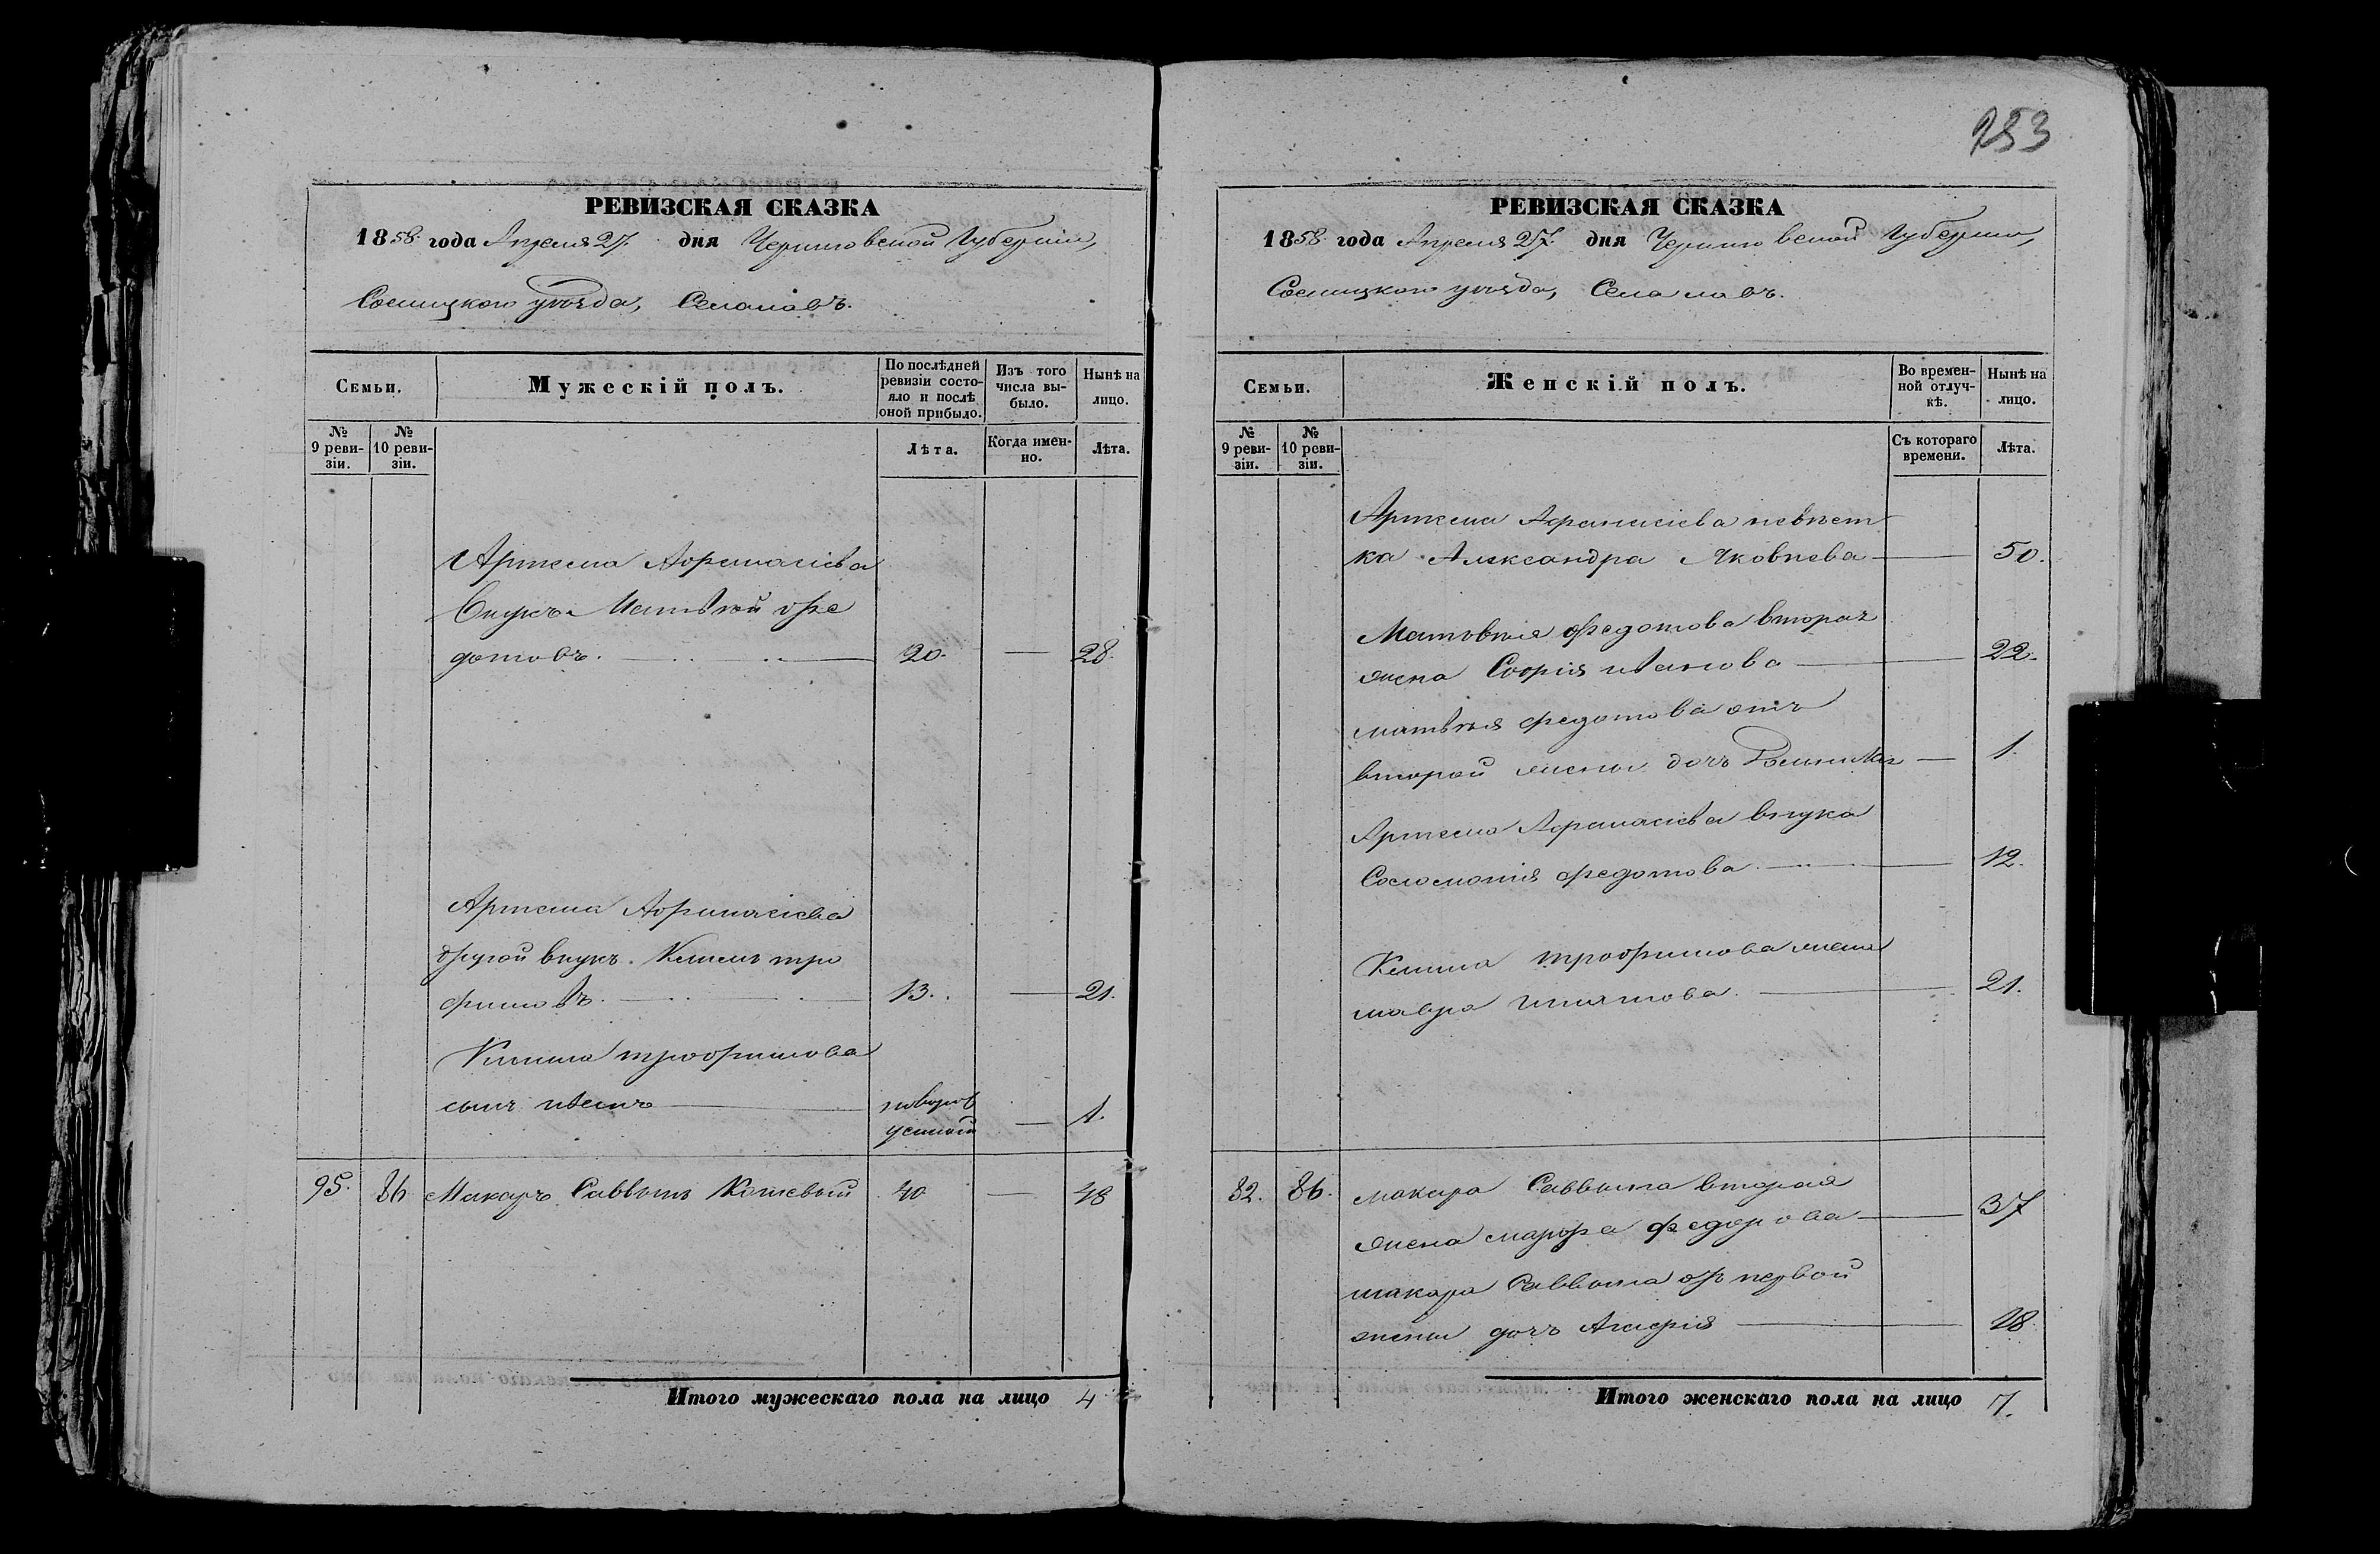 253
РЕВИЗСКАЯ СКАЗКА
1858 года Апреля 27. дня Черниговской Губерніи,
Сосницкого уѣзда, Села
Семьи.
Мужескій полъ.
По послѣдней ревизіи состояло и послѣ оной прибыло.
Изъ того числа выбыло.
Нынѣ на лицо.
№ 9 ревизіи.
№ 10 ревизіи.
Лѣта.
Когда именно.
Лѣта.
Артема Афанасіева
Внукъ Матвѣй Фе
дотовъ. 20. — 28.
Артема Афанасіева
другой внукъ. Климъ тро
фимовъ. 13. — 21.
Клима трофимова
сынъ новорож
денный — 1.
95. 86 Макаръ Саввинъ Кошевый 40 — 48
Итого мужескаго пола на лицо 4
РЕВИЗСКАЯ СКАЗКА
1858 года Апреля 27. дня Черниговской Губерніи,
Сосницкого уѣзда, Села
Семьи.
Женскій полъ.
Во временной отлучкѣ.
Нынѣ на лицо.
№ 9 ревизіи.
№ 10 ревизіи.
Съ котораго времени.
Лѣта.
Артема Афанасіева невѣст
ка Александра Яковлева — 50.
Матвѣя Федотова вторая
жена Софія иванова — 22.
матвѣя федотова отъ
второй жены дочь — 1.
Артема Афанасіева внука
Соломонія федотова — 12.
Клима трофимова жена
мавра — 21.
82. 86. макара Саввина вторая
жена марфа федорова — 37
макара Саввина первой
жены дочь — 18
Итого женскаго пола на лицо 7.